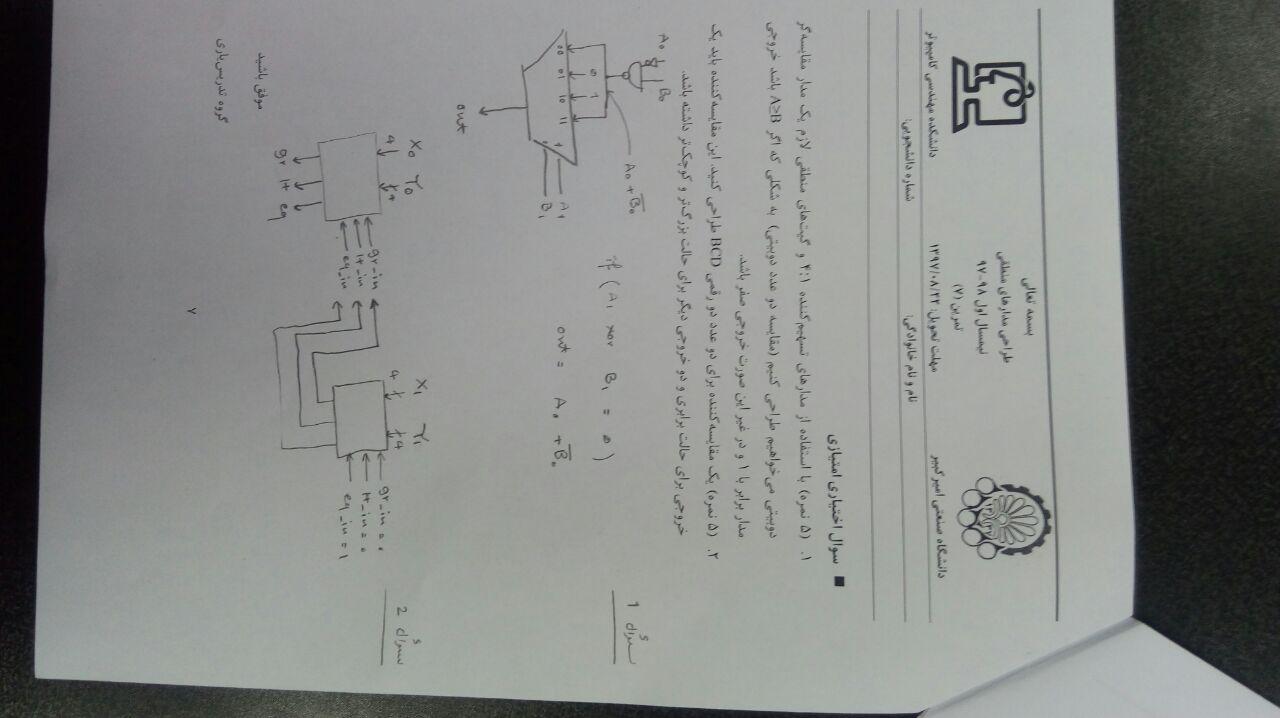 بسمه تعالی
طراحی مدارهای منطقی
نیمسال اول ۹۸-۹۷
تمرین (۷)
مهلت تحویل: ۱۳۹۷/۰۸/۲۲
دانشگاه صنعتی امیرکبیر
دانشکده مهندسی کامپیوتر
نام و نام خانوادگی: شماره دانشجویی:
■ سوال اختیاری امتیازی
۱. (۵ نمره) با استفاده از مدارهای تسهیم‌کننده ۴:۱ و گیت‌های منطقی لازم یک مدار مقایسه‌گر
دوبیتی می‌خواهیم طراحی کنیم (مقایسه دو عدد دوبیتی) به شکلی که اگر A≥B باشد خروجی
مدار برابر با ۱ و در غیر این صورت خروجی صفر باشد.
۲. (۵ نمره) یک مقایسه‌کننده برای دو عدد دو رقمی BCD طراحی کنید. این مقایسه‌کننده باید یک
خروجی برای حالت برابری و دو خروجی دیگر برای حالت بزرگ‌تر و کوچک‌تر داشته باشد.
سؤال 1
A₀ B₀
A₀ + B̅₀
if ( A₁ xor B₁ = 0 )
out = A₀ + B̅₀
0 1
00 01 10 11
1 A₁
0 B₁
out
سؤال 2
X₀ Y₀
4 4
gr_in
lt_in
eq_in
gr lt eq
X₁ Y₁
4 4
gr_in = 0
lt_in = 0
eq_in = 1
موفق باشید
گروه تدریس‌یاری
۷